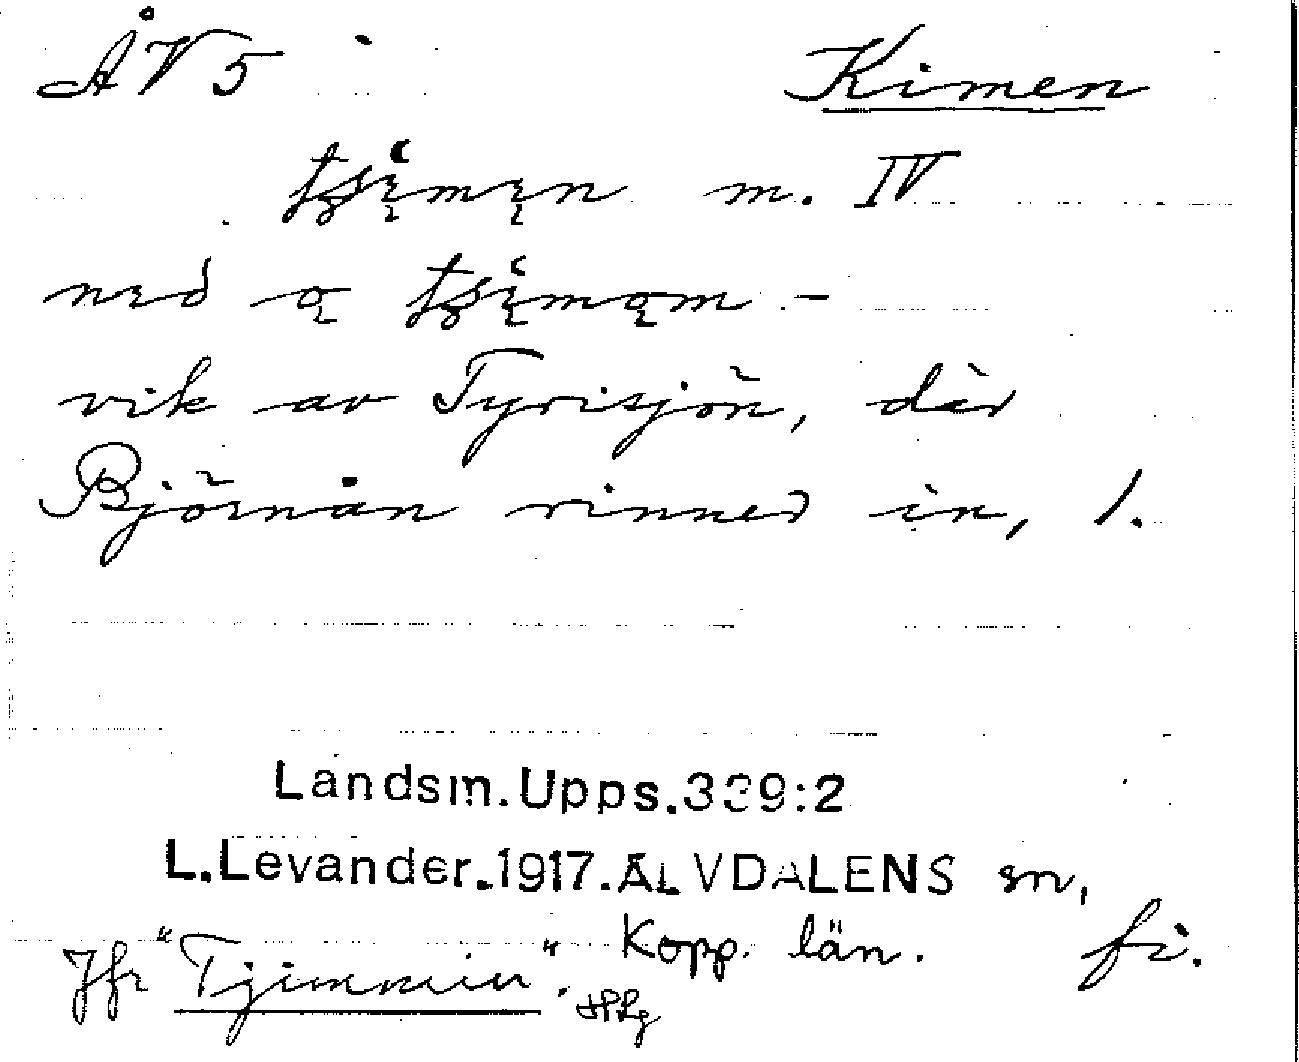 ÅV5 Kimen
tşi̢mi̢n m. IV
neđ ą tşi̢mąm –
vik av Tyrisjön, där
Björnån rinner in, 1.
Landsm.Upps.339:2
L.Levander.1917.ÄLVDALENS sn,
Kopp. län. fi.
Jfr "Tjimmin".